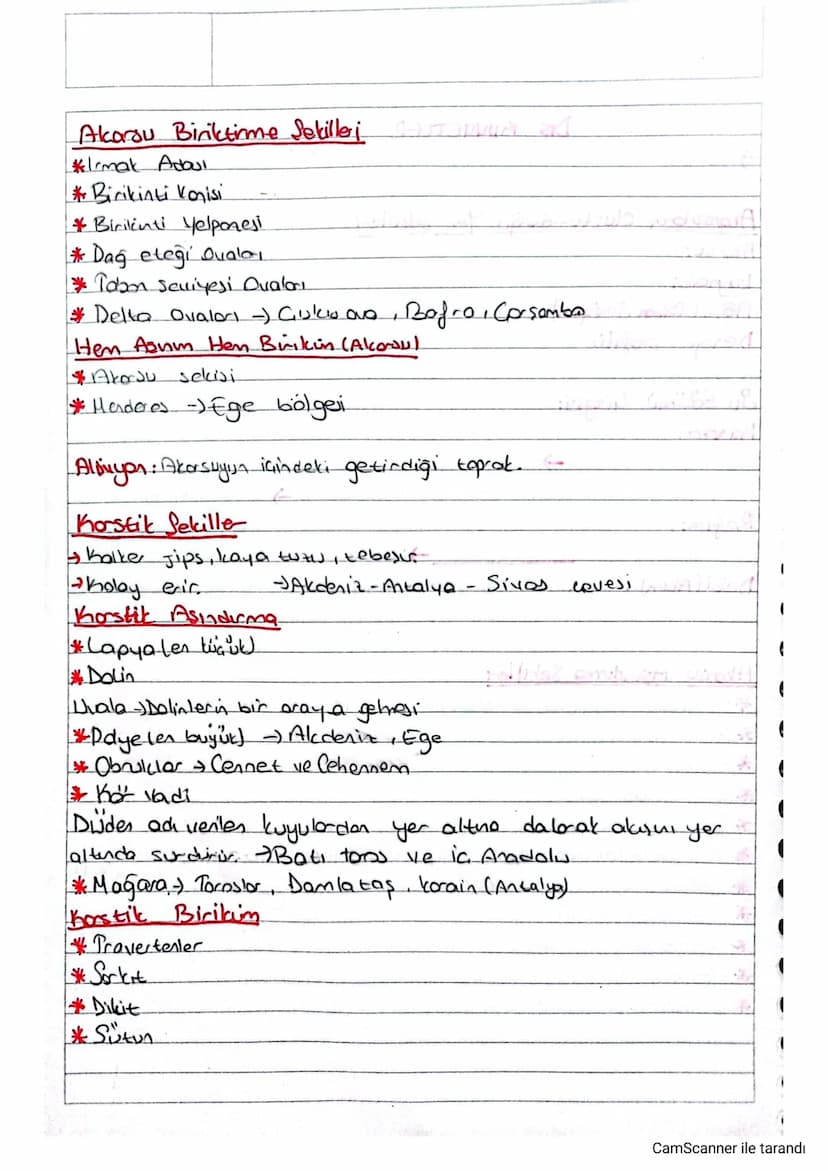 Akarsu Biriktirme Şekilleri
*Irmak Adası
*Birikinti Konisi
*Birikinti Yelpazesi
*Dağ eteği Ovaları
*Taban Seviyesi Ovaları
*Delta Ovaları → Çukurova, Bafra, Çarşamba
Hem Aşınım Hem Birikim (Akarsu)
*Akarsu sekisi
*Menderes → Ege bölgesi
Alüvyon: Akarsuyun içindeki getirdiği toprak.
Karstik Şekiller
→ Kalker jips, kaya tuzu, tebeşir
→ Kolay erir. → Akdeniz - Antalya - Sivas çevesi
Karstik Aşındırma
*Lapya (en küçük)
*Dolin
Uvala → Dolinlerin bir araya gelmesi
*Polye (en büyük) → Akdeniz, Ege
*Obruklar → Cennet ve Cehennem
*Kör vadi
Düden adı verilen kuyulardan yer altına dalarak akışını yer
altında sürdürür. → Batı toros ve iç Anadolu
*Mağara → Toroslar, Damlataş, Karain (Antalya)
Karstik Birikim
*Travertenler
*Sarkıt
*Dikit
*Sütun
CamScanner ile tarandı